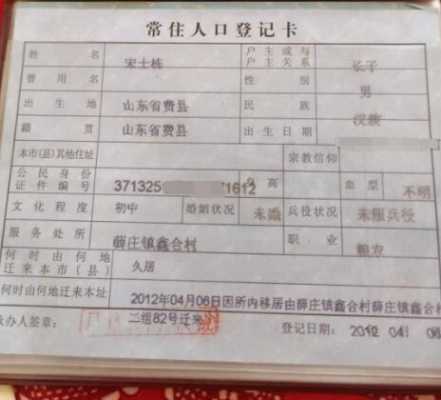 常住人口登记卡
姓名 宋士栋 户主或与户主关系 长子
曾用名 性别 男
出生地 山东省费县 民族 汉族
籍贯 山东省费县 出生日期
本市(县)其他住址 宗教信仰
公民身份证件编号 371325 1612 身高 血型 不明
文化程度 初中 婚姻状况 未婚 兵役状况 未服兵役
服务处所 薛庄镇鑫合村 职业 粮农
何时由何地迁来本市(县) 久居
何时由何地迁来本址 2012年04月06日因所内移居由薛庄镇鑫合村薛庄镇鑫合
二组82号迁来
承办人签章: 登记日期: 2012 04 06